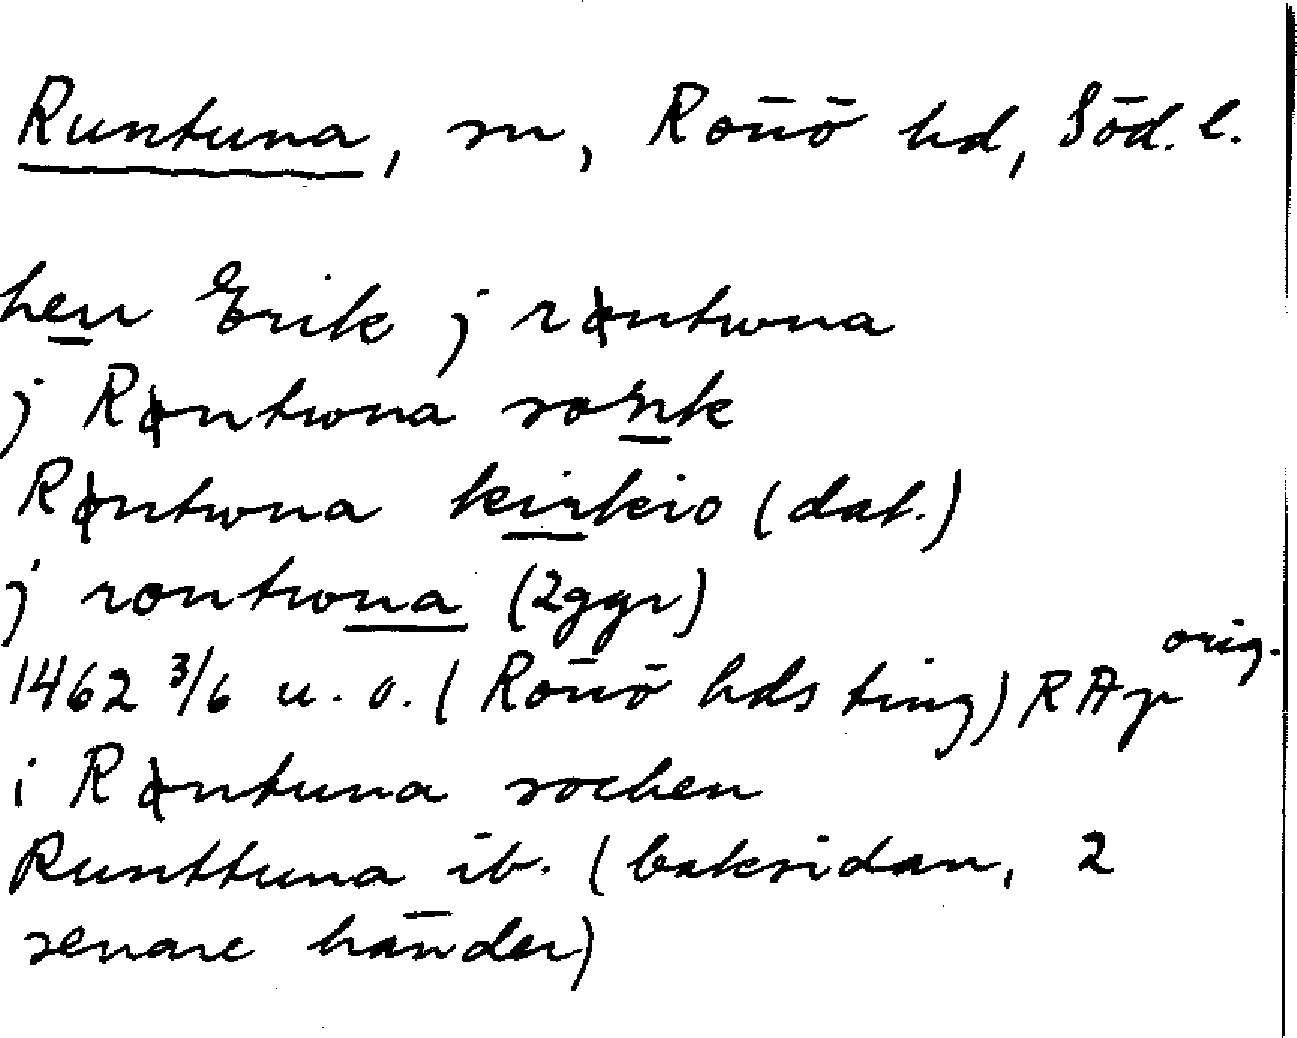 Runtuna, sn, Rönö hd, Söd. l.
herr Erik j røntwna
j Røntwna sokn
Røntwna kirkio (dat.)
j rontwna (2ggr)
1462 3/6 u. o. (Rönö hds ting) RAp orig.
i Røntuna sochen
Runttuna ib. (baksidan, 2
senare händer)